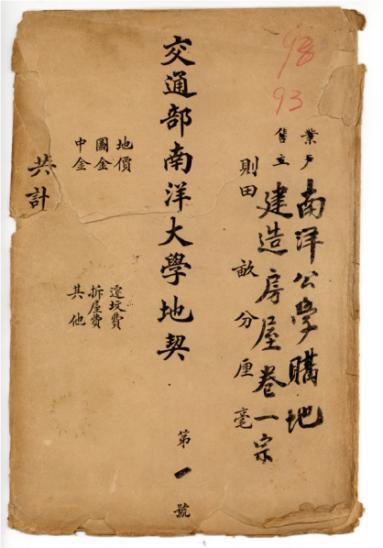 98
93
業戶南洋公學購地
售主建造房屋卷一宗
則田畝分厘毫
交通部南洋大學地契
第一號
地價
圖金
中金
遷坟費
拆屋費
其他
共計